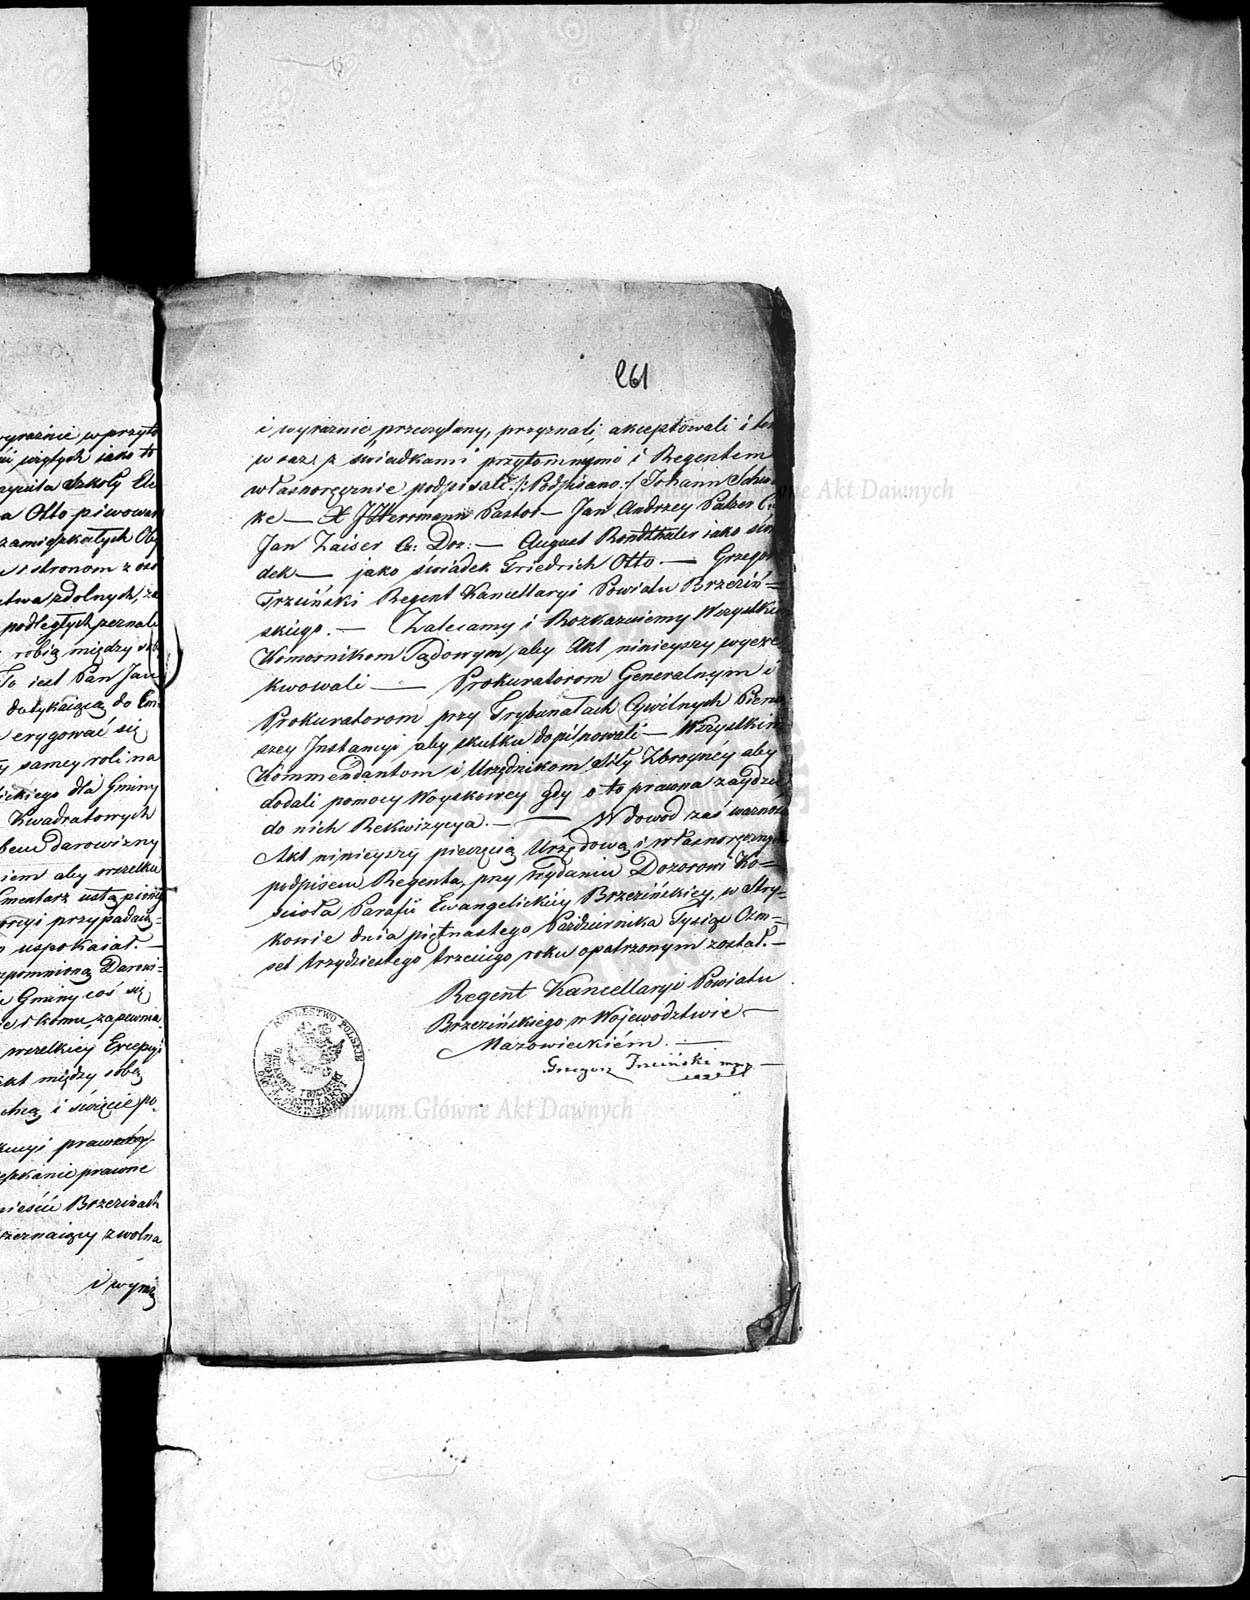 wyraźnie w przyto
Szkoły Ele
a Otto piwowar
zamieszkałych Oby
stronom z oso
zdolnych, za
podległych zeznali
robią między sobą
To iest Pan Jan
dotykaiącą do Em
erygować się
samey roli na
dla Gminy
Kwadratowych
darowizny
aby wszelkie
ustąpionej
przypadaią-
uspokaiał. —
wspomnioną Darowi-
Gminy coś się
komu, zapewnia
wszelkiey Excepcyi
między sobą
i święcie po-
prawney
prawne
Brzezinach
zwolna
i wyraź
261
i wyraźnie przeczytany, przyznali, akceptowali i ten
wraz z świadkami przytomnymi i Regentem
własnoręcznie podpisali /: Podpisano :/ Johann Schun
ke — X J Herrmann Pastor — Jan Andrzey Palzer Cz:
Jan Zaiser Cz: Doz: — August Rondthaler iako świa
dek — jako świadek Friedrich Otto. — Grzegorz
Trzciński Regent Kancellaryi Powiatu Brzeziń=
skiego. — Zalecamy i Rozkazuiemy Wszystkim
Komornikom Sądowym, aby Akt ninieyszy wyexe
kwowali — Prokuratorom Generalnym i
Prokuratorom przy Trybunałach Cywilnych Pierw
szey Instancyi, aby skutku dopilnowali — Wszystkim
Kommendantom i Urzędnikom Siły Zbroyney aby
dodali pomocy Woyskowey gdy o to prawna zaydzie
do nich Rekwizycya. — W dowód zaś ważności
Akt ninieyszy pieczęcią Urzędową i własnoręcznym
podpisem Regenta, przy wydaniu Dozorowi Ko=
ścioła Parafii Ewangelickiey Brzezińskiey, w Stry-
kowie dnia piętnastego Października Tysiąc Ośm-
set trzydziestego trzeciego roku opatrzonym został. —
Regent Kancellaryi Powiatu
Brzezińskiego w Województwie —
Mazowieckiém. —
Grzegorz Trzciński mpp —
KROLESTWO POLSKIE
Archiwum Główne Akt Dawnych
Archiwum Główne Akt Dawnych